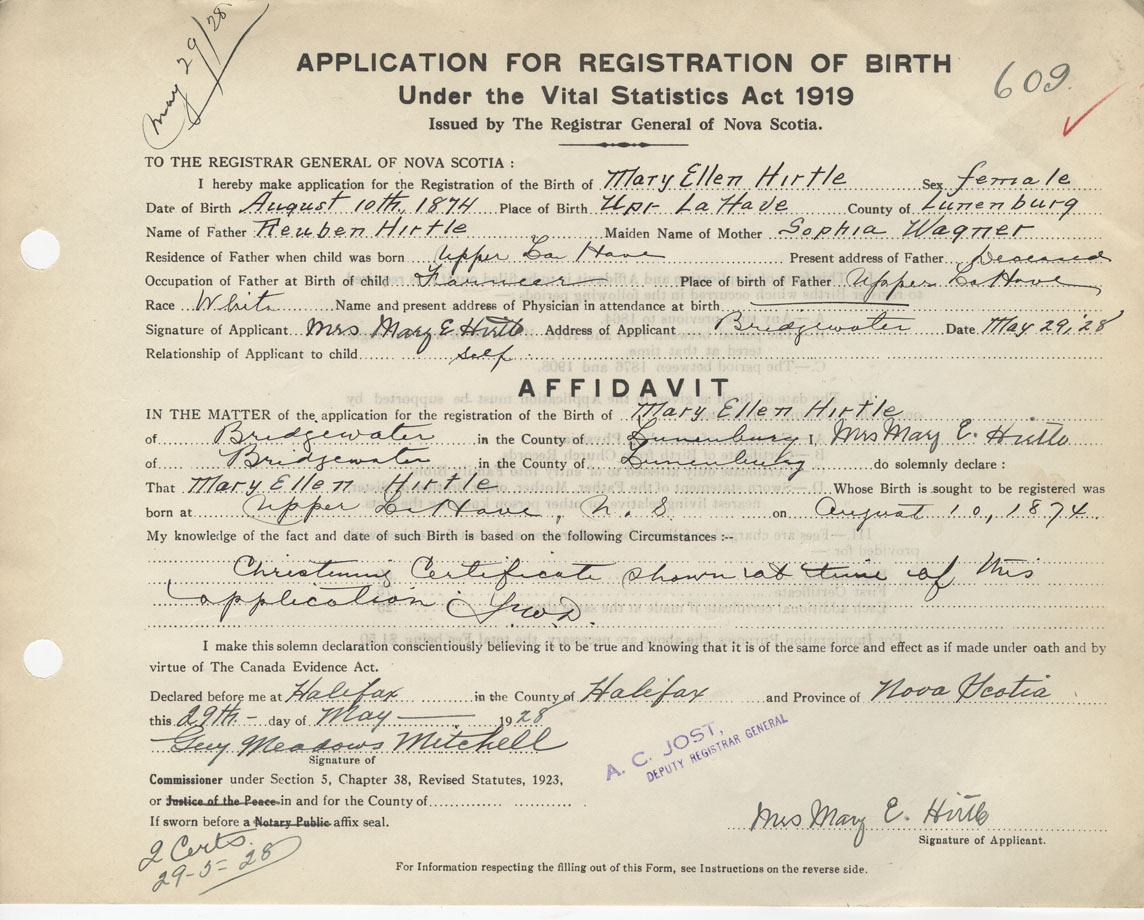 May 29/28
APPLICATION FOR REGISTRATION OF BIRTH
609.
Under the Vital Statistics Act 1919
Issued by The Registrar General of Nova Scotia.
TO THE REGISTRAR GENERAL OF NOVA SCOTIA :
I hereby make application for the Registration of the Birth of Mary Ellen Hirtle Sex female
Date of Birth August 10th, 1874 Place of Birth Upr LaHave County of Lunenburg
Name of Father Reuben Hirtle Maiden Name of Mother Sophia Wagner
Residence of Father when child was born Upper La Have Present address of Father Deceased
Occupation of Father at Birth of child Farmer Place of birth of Father Upper LaHave
Race White Name and present address of Physician in attendance at birth
Signature of Applicant Mrs Mary E Hirtle Address of Applicant Bridgewater Date May 29, '28
Relationship of Applicant to child self
AFFIDAVIT
IN THE MATTER of the application for the registration of the Birth of Mary Ellen Hirtle
of Bridgewater in the County of Lunenburg I, Mrs Mary E. Hirtle
of Bridgewater in the County of Lunenburg do solemnly declare :
That Mary Ellen Hirtle Whose Birth is sought to be registered was
born at Upper LaHave, N.S. on August 10, 1874
My knowledge of the fact and date of such Birth is based on the following Circumstances :--
Christening Certificate shown at time of this
application
I make this solemn declaration conscientiously believing it to be true and knowing that it is of the same force and effect as if made under oath and by
virtue of The Canada Evidence Act.
Declared before me at Halifax in the County of Halifax and Province of Nova Scotia
this 29th - day of May 1928
Guy Meadows Mitchell
Signature of
A. C. JOST,
DEPUTY REGISTRAR GENERAL
Commissioner under Section 5, Chapter 38, Revised Statutes, 1923,
or Justice of the Peace in and for the County of
If sworn before a Notary Public affix seal.
Mrs Mary E. Hirtle
Signature of Applicant.
2 Certs.
29-5-28
For Information respecting the filling out of this Form, see Instructions on the reverse side.